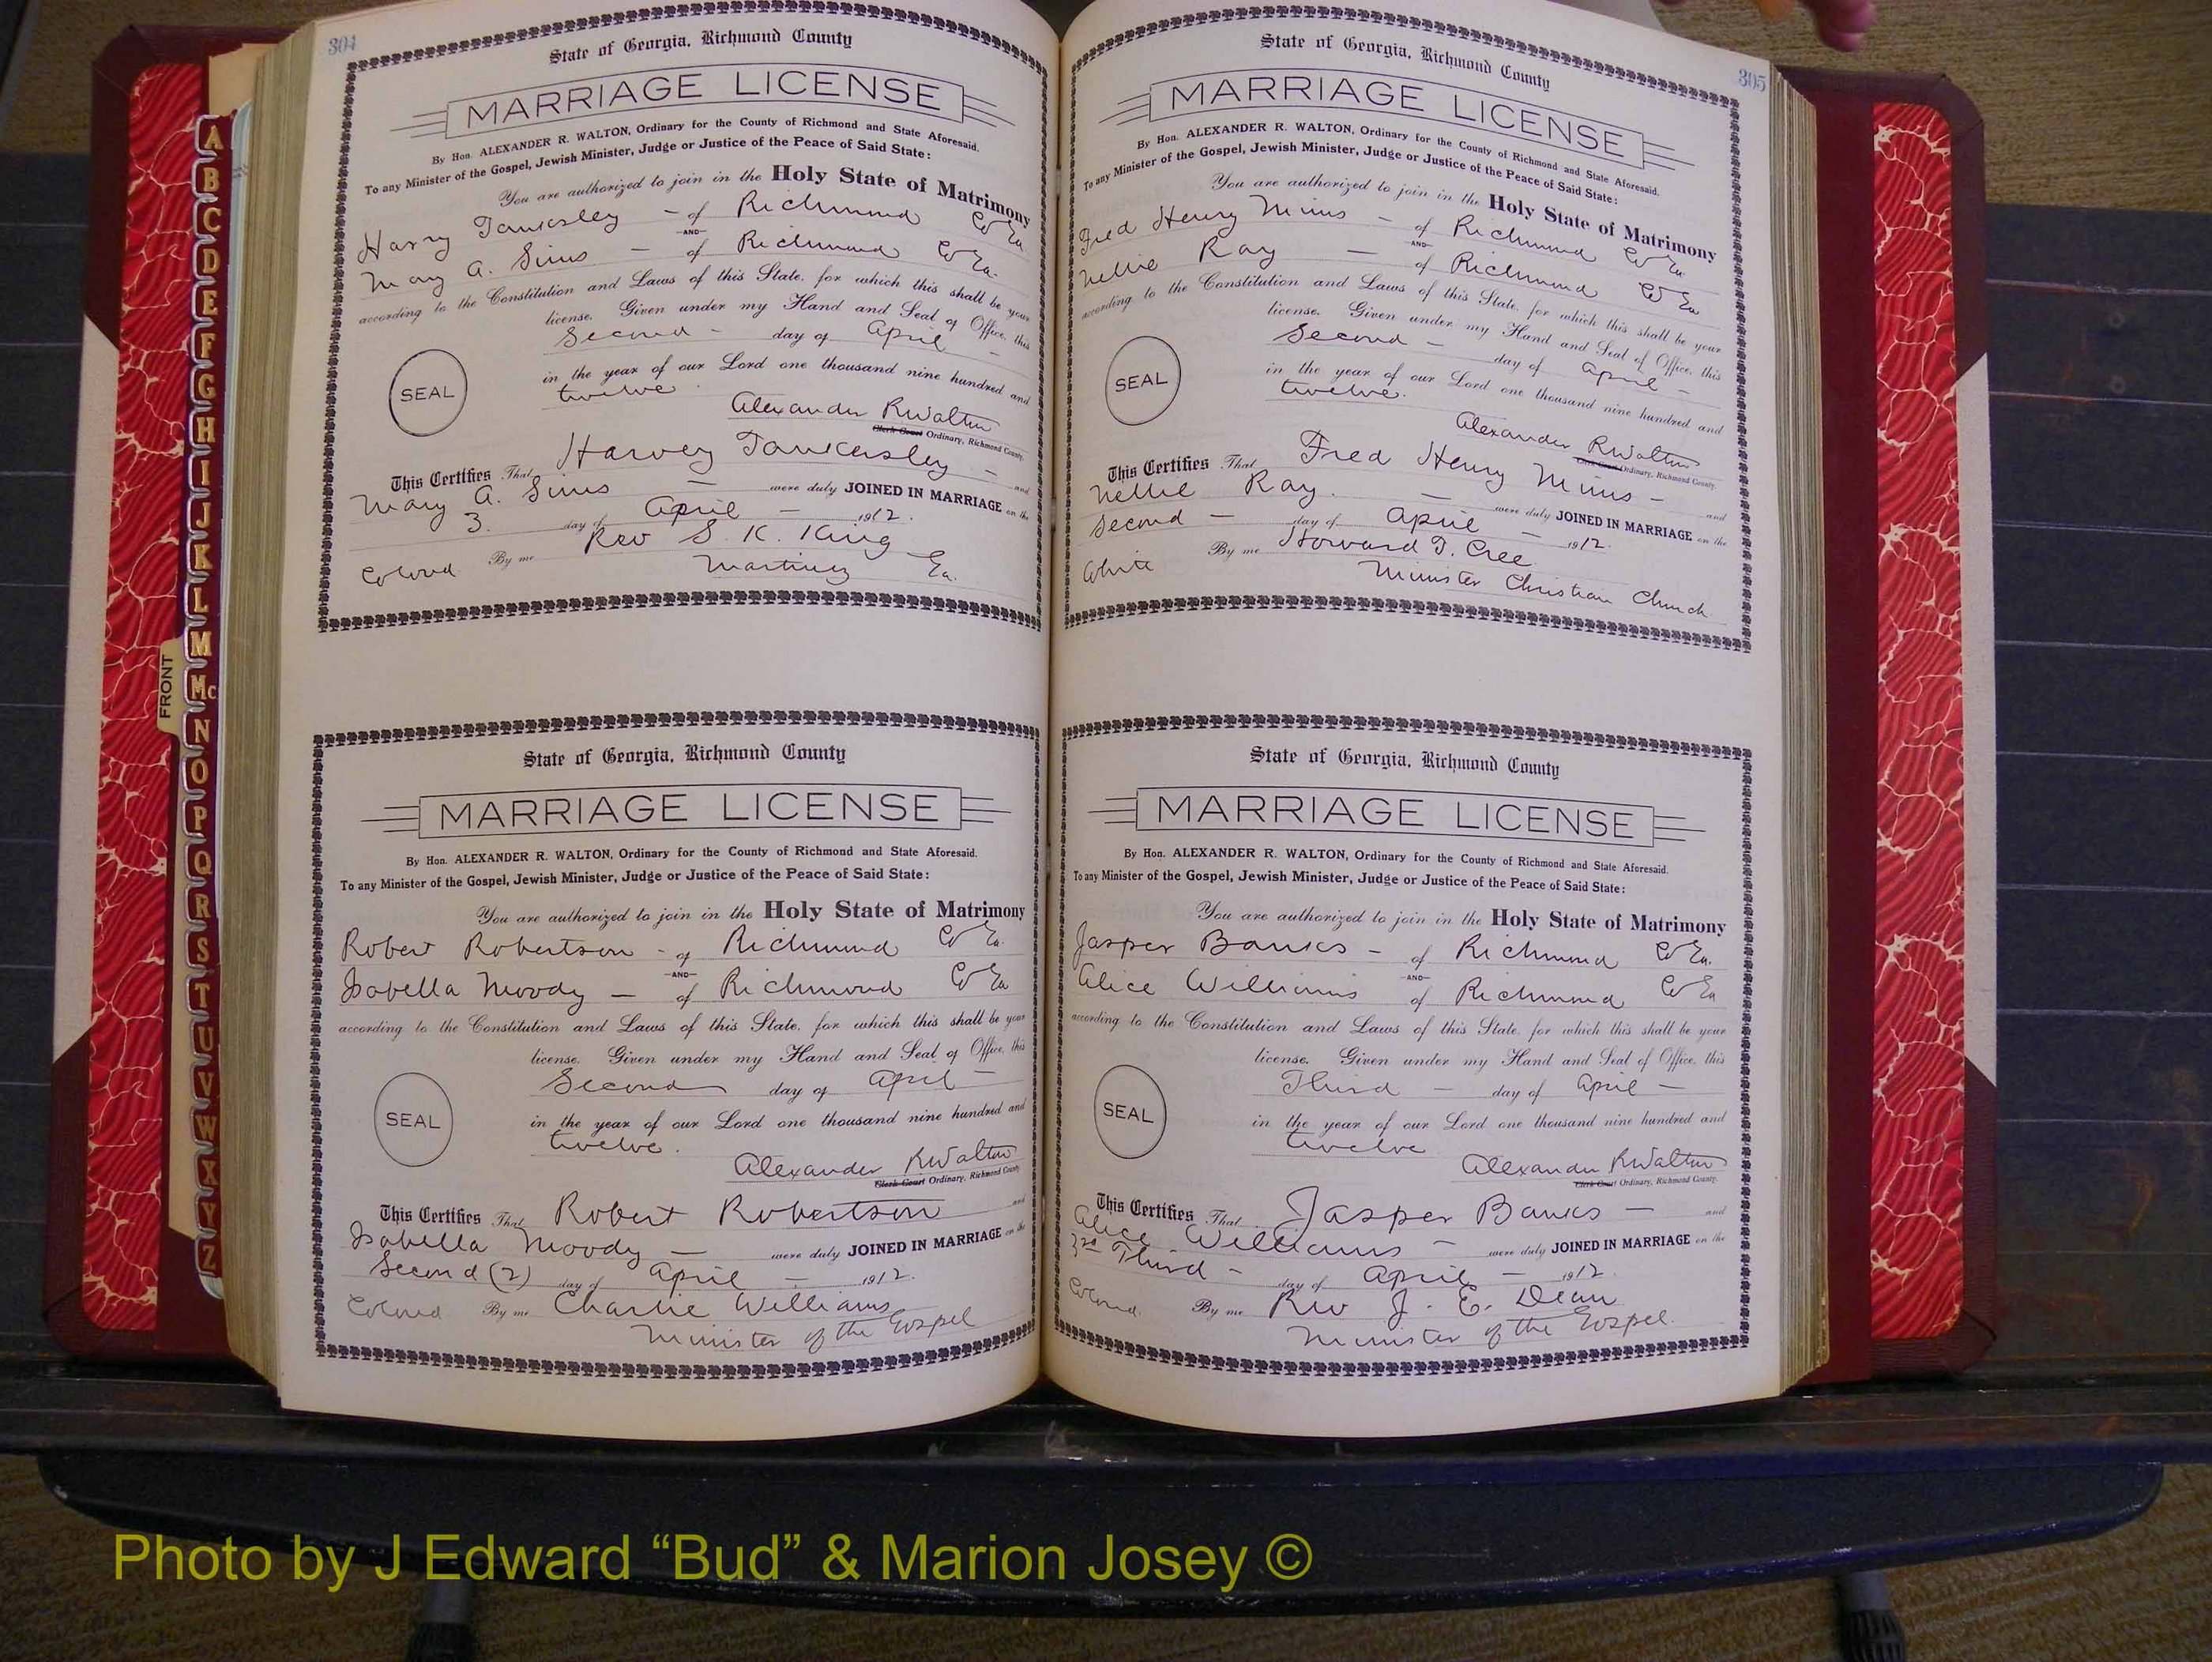 304
State of Georgia, Richmond County
MARRIAGE LICENSE
By Hon. ALEXANDER R. WALTON, Ordinary for the County of Richmond and State Aforesaid.
To any Minister of the Gospel, Jewish Minister, Judge or Justice of the Peace of Said State:
You are authorized to join in the Holy State of Matrimony
Harry Tankersley - of Richmond Co Ga
AND
Mary A. Sims - of Richmond Co Ga.
according to the Constitution and Laws of this State, for which this shall be your
license. Given under my Hand and Seal of Office, this
Second - day of April -
SEAL
in the year of our Lord one thousand nine hundred and
twelve
Alexander R Walton
Clerk Court Ordinary, Richmond County.
This Certifies That Harvey Tankersley - and
Mary A. Sims - were duly JOINED IN MARRIAGE on the
3. day of April - 1912.
Colored By me Rev S. K. King
Martinez Ga.
State of Georgia, Richmond County
MARRIAGE LICENSE
By Hon. ALEXANDER R. WALTON, Ordinary for the County of Richmond and State Aforesaid.
To any Minister of the Gospel, Jewish Minister, Judge or Justice of the Peace of Said State:
You are authorized to join in the Holy State of Matrimony
Robert Robertson - of Richmond Co Ga.
AND
Isabella Moody - of Richmond Co Ga
according to the Constitution and Laws of this State, for which this shall be your
license. Given under my Hand and Seal of Office, this
Second day of April -
SEAL
in the year of our Lord one thousand nine hundred and
twelve.
Alexander R Walton
Clerk Court Ordinary, Richmond County
This Certifies That Robert Robertson and
Isabella Moody - were duly JOINED IN MARRIAGE on the
Second (2) day of April - 1912.
Colored By me Charlie Williams
Minister of the Gospel
305
State of Georgia, Richmond County
MARRIAGE LICENSE
By Hon. ALEXANDER R. WALTON, Ordinary for the County of Richmond and State Aforesaid.
To any Minister of the Gospel, Jewish Minister, Judge or Justice of the Peace of Said State:
You are authorized to join in the Holy State of Matrimony
Fred Henry Mims - of Richmond Co Ga
AND
Nellie Ray - of Richmond Co Ga
according to the Constitution and Laws of this State, for which this shall be your
license. Given under my Hand and Seal of Office, this
Second - day of April -
SEAL
in the year of our Lord one thousand nine hundred and
twelve.
Alexander R Walton
Clerk Court Ordinary, Richmond County.
This Certifies That Fred Henry Mims - and
Nellie Ray. - were duly JOINED IN MARRIAGE on the
Second - day of April - 1912.
White By me Howard T. Cree
Minister Christian Church
State of Georgia, Richmond County
MARRIAGE LICENSE
By Hon. ALEXANDER R. WALTON, Ordinary for the County of Richmond and State Aforesaid.
To any Minister of the Gospel, Jewish Minister, Judge or Justice of the Peace of Said State:
You are authorized to join in the Holy State of Matrimony
Jasper Banks - of Richmond Co Ga.
AND
Alice Williams of Richmond Co Ga
according to the Constitution and Laws of this State, for which this shall be your
license. Given under my Hand and Seal of Office, this
Third - day of April -
SEAL
in the year of our Lord one thousand nine hundred and
twelve
Alexander R Walton
Clerk Court Ordinary, Richmond County.
This Certifies That Jasper Banks - and
Alice Williams - were duly JOINED IN MARRIAGE on the
3rd Third - day of April - 1912
Colored. By me Rev J. E. Dean
Minister of the Gospel.
FRONT
A
B
C
D
E
F
G
H
I
J
K
L
M
Mc
N
O
P
Q
R
S
T
U
V
W
X
Y
Z
Photo by J Edward “Bud” & Marion Josey ©